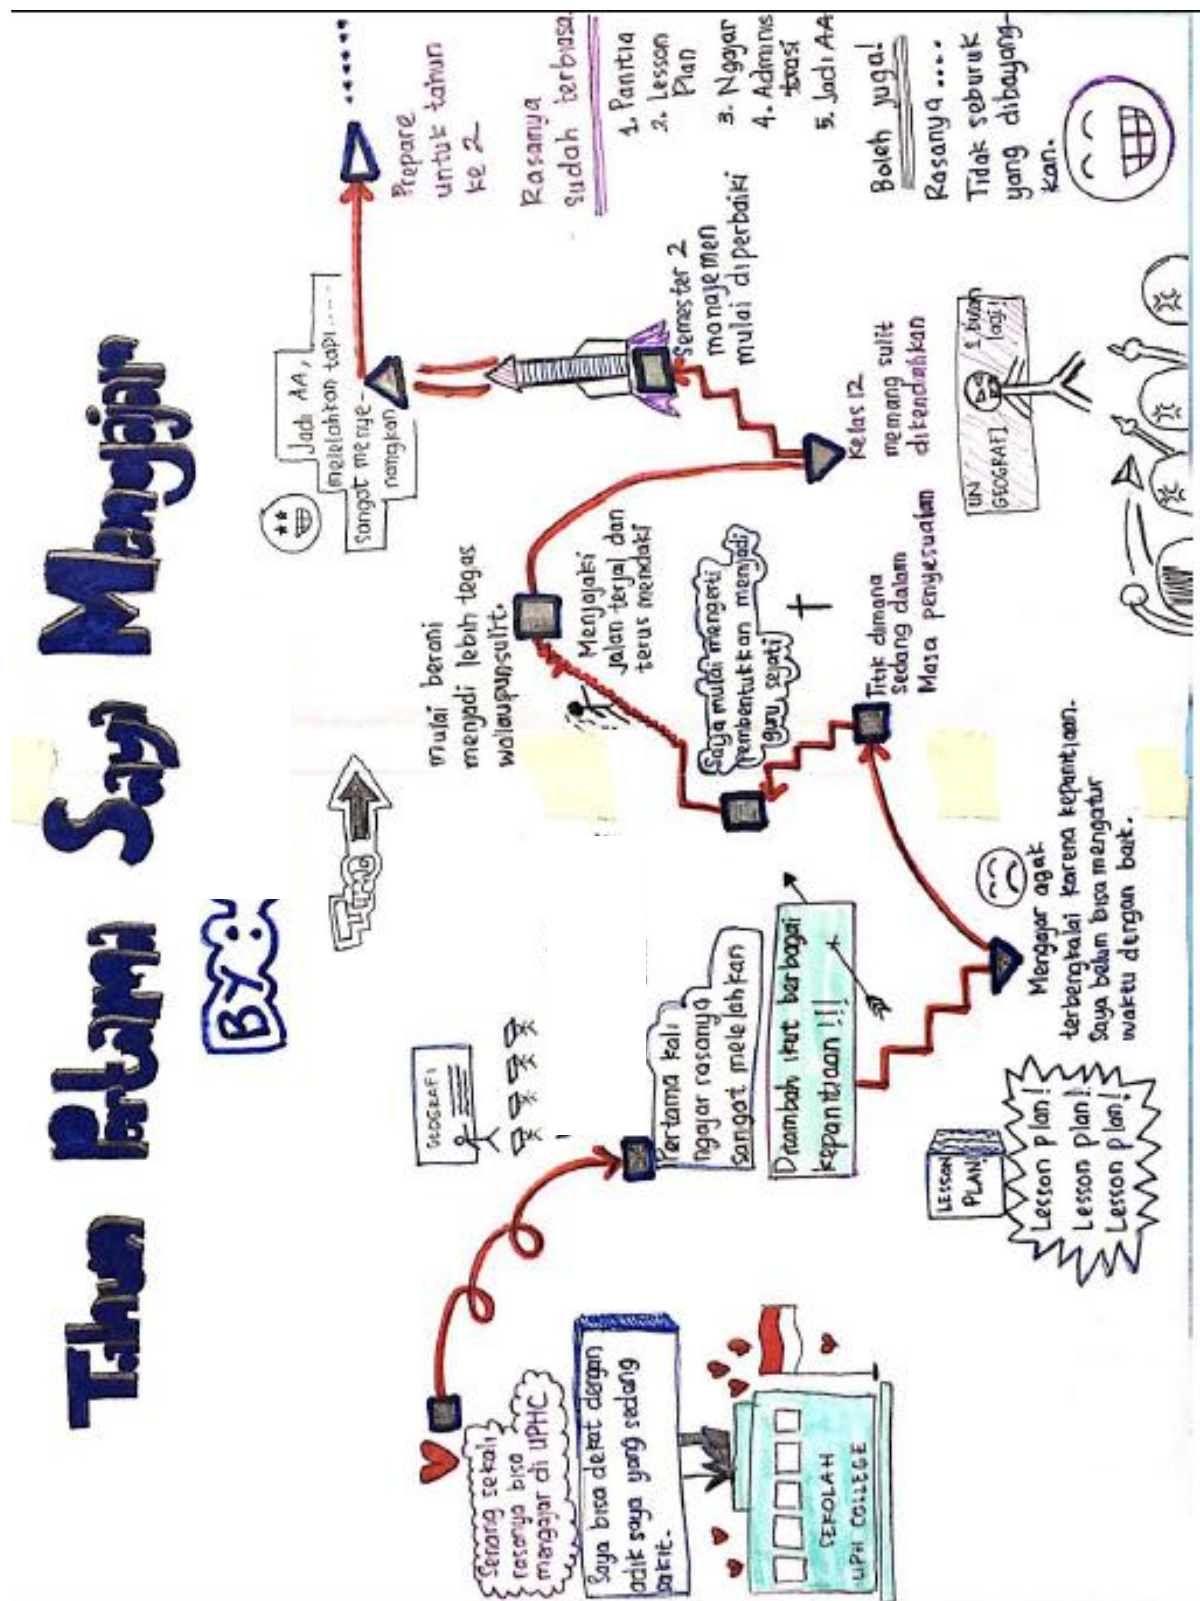 Tahun Pertama Saya Mengajar
BY:
TIME
Senang sekali
rasanya bisa
mengajar di UPHC
Saya bisa dekat dengan
adik saya yang sedang
sakit.
SEKOLAH
UPH COLLEGE
GEOGRAFI
Pertama kali
ngajar rasanya
sangat melelahkan
Ditambah ikut berbagai
kepanitiaan!!!
LESSON
PLAN!
Lesson plan!
Lesson plan!
Lesson plan!
Mengajar agak
terbengkalai karena kepanitiaan.
Saya belum bisa mengatur
waktu dengan baik.
Titik dimana
sedang dalam
Masa penyesuaian
Saya mulai mengerti
pembentukkan menjadi
guru sejati
mulai berani
menjadi lebih tegas
walaupun sulit.
Menjajaki
jalan terjal dan
terus mendaki
Kelas 12
memang sulit
dikendalikan
UN
GEOGRAFI
1 bulan
lagi!
Semester 2
manajemen
mulai diperbaiki
Jadi AA,
melelahkan tapi.....
sangat menye-
nangkan
Prepare
untuk tahun
ke 2
Rasanya
sudah terbiasa
1. Panitia
2. Lesson
Plan
3. Ngajar
4. Adminis
trasi
5. Jadi AA
Boleh juga!
Rasanya ....
Tidak seburuk
yang dibayang-
kan.